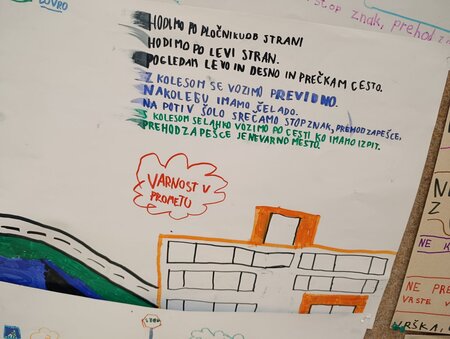 DOVRO
STOP ZNAK, PREHOD Z
HODIMO PO PLOČNIKUDB STRANI
HODIMO PO LEVI STRAN.
POGLEDAM LEVO IN DESNO IN PREČKAM CESTO.
Z KOLESOM SE VOZIMO PREVIDNO.
NAKOLEBU IMAMO ČELADO.
NA POTIV ŠOLO SREČAMO STOPZNAK, PREHODZAPEŠCE,
S KOLESOM SELAHKO VOZIMO PO CESTI KO IMAMO IZPIT.
PREHODZAPEŠCE JE NEVARNO MESTO.
VARNOST V
PROMETU
STOP
N
Z
NE K
NE PRE
VRSTE V
VRŠKA,